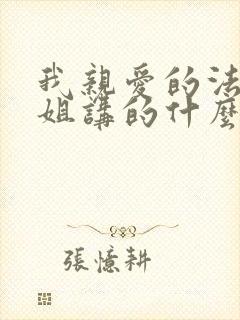 我親愛的法
姐講的什麼
張憶耕